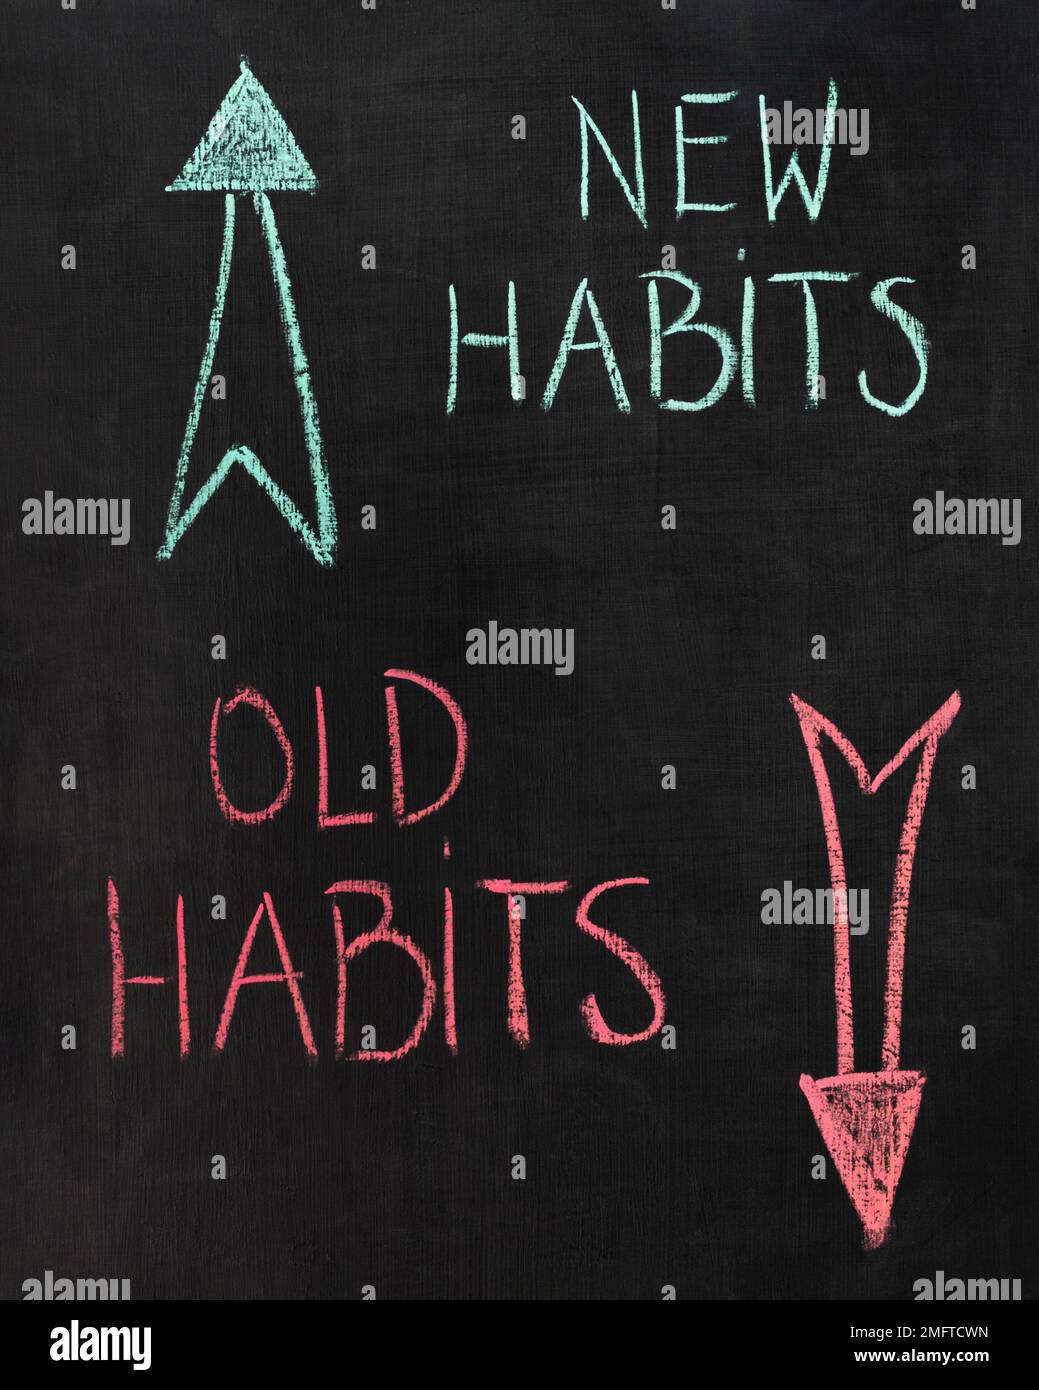 NEW
HABiTS
OLD
HABiTS
alamy
alamy
alamy
alamy
alamy
Image ID: 2MFTCWN
www.alamy.com